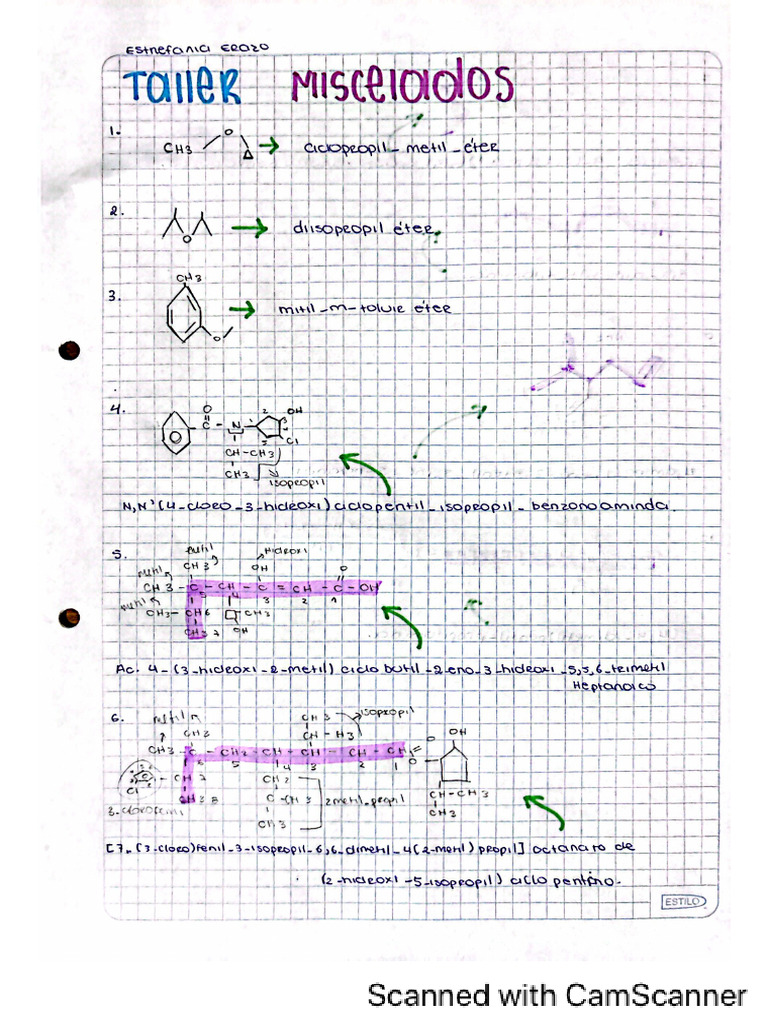 Esthefania Erazo
Taller Miscelados
1.
CH3 O → ciclopropil - metil - éter
2.
O → diisopropil éter
3.
CH3
O → mitil - m - toluie éter
4.
O
C - N
2 OH
3
Cl
CH-CH3
CH3
isopropil
N,N' (4-cloro-3-hidroxi) ciclopentil - isopropil - benzonoaminda.
5.
Hidroxi
CH3 OH O
CH3 - C - CH - C = CH - C - OH
5 4 3 2 1
CH3 - CH6 CH3
CH3 7 OH
Ac. 4-(3-hidroxi-2-metil) ciclo butil-2-eno-3-hidroxi-5,5,6-trimetil
Heptanoico
6.
CH3 isopropil OH
CH3 CH - H3 O
CH3 - C - CH2 - CH - CH - CH - CH O
6 5 4 3 2 1
C - CH 7 CH2 CH-CH3
Cl CH3 8 C - CH3 2metil-propil CH3
CH3
[7-(3-cloro)fenil-3-isopropil-6,6-dimetil-4(2-metil) propil] octanato de
(2-hidroxi-5-isopropil) ciclo pentino.
ESTILO
Scanned with CamScanner